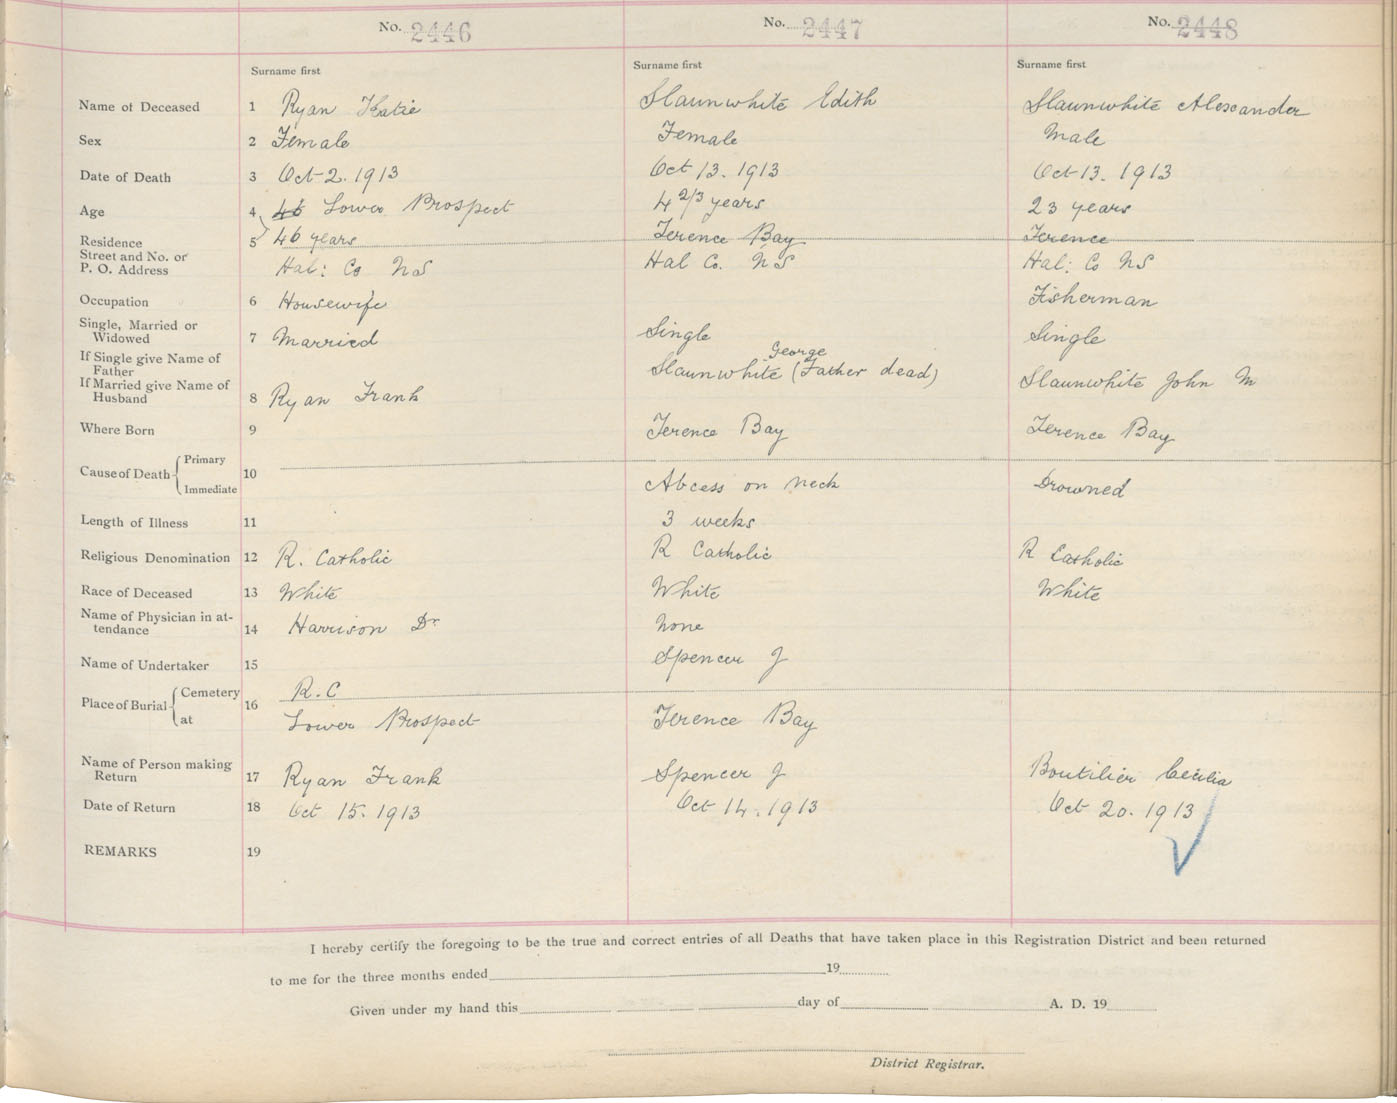 No. 2446 No. 2447 No. 2448
Surname first Surname first Surname first
Name of Deceased 1 Ryan Katie Slaunwhite Edith Slaunwhite Alexander
Sex 2 Female Female Male
Date of Death 3 Oct 2. 1913 Oct 13. 1913 Oct 13. 1913
Age 4 46 Lower Prospect 4 2/3 years 23 years
Residence 5 46 years Terence Bay Terence
Street and No. or
P. O. Address Hal: Co NS Hal Co. NS Hal: Co NS
Occupation 6 Housewife Fisherman
Single, Married or
Widowed 7 Married Single Single
If Single give Name of George
Father Slaunwhite (Father dead) Slaunwhite John M
If Married give Name of
Husband 8 Ryan Frank
Where Born 9 Terence Bay Terence Bay
Cause of Death Primary 10
Immediate Abcess on neck Drowned
Length of Illness 11 3 weeks
Religious Denomination 12 R. Catholic R Catholic R Catholic
Race of Deceased 13 White White White
Name of Physician in at-
tendance 14 Harrison Dr None
Name of Undertaker 15 Spencer J
Place of Burial Cemetery 16 R.C
at Lower Prospect Terence Bay
Name of Person making
Return 17 Ryan Frank Spencer J Boutilier Cecilia
Date of Return 18 Oct 15. 1913 Oct 14. 1913 Oct 20. 1913
REMARKS 19
I hereby certify the foregoing to be the true and correct entries of all Deaths that have taken place in this Registration District and been returned
to me for the three months ended 19
Given under my hand this day of A. D. 19
District Registrar.